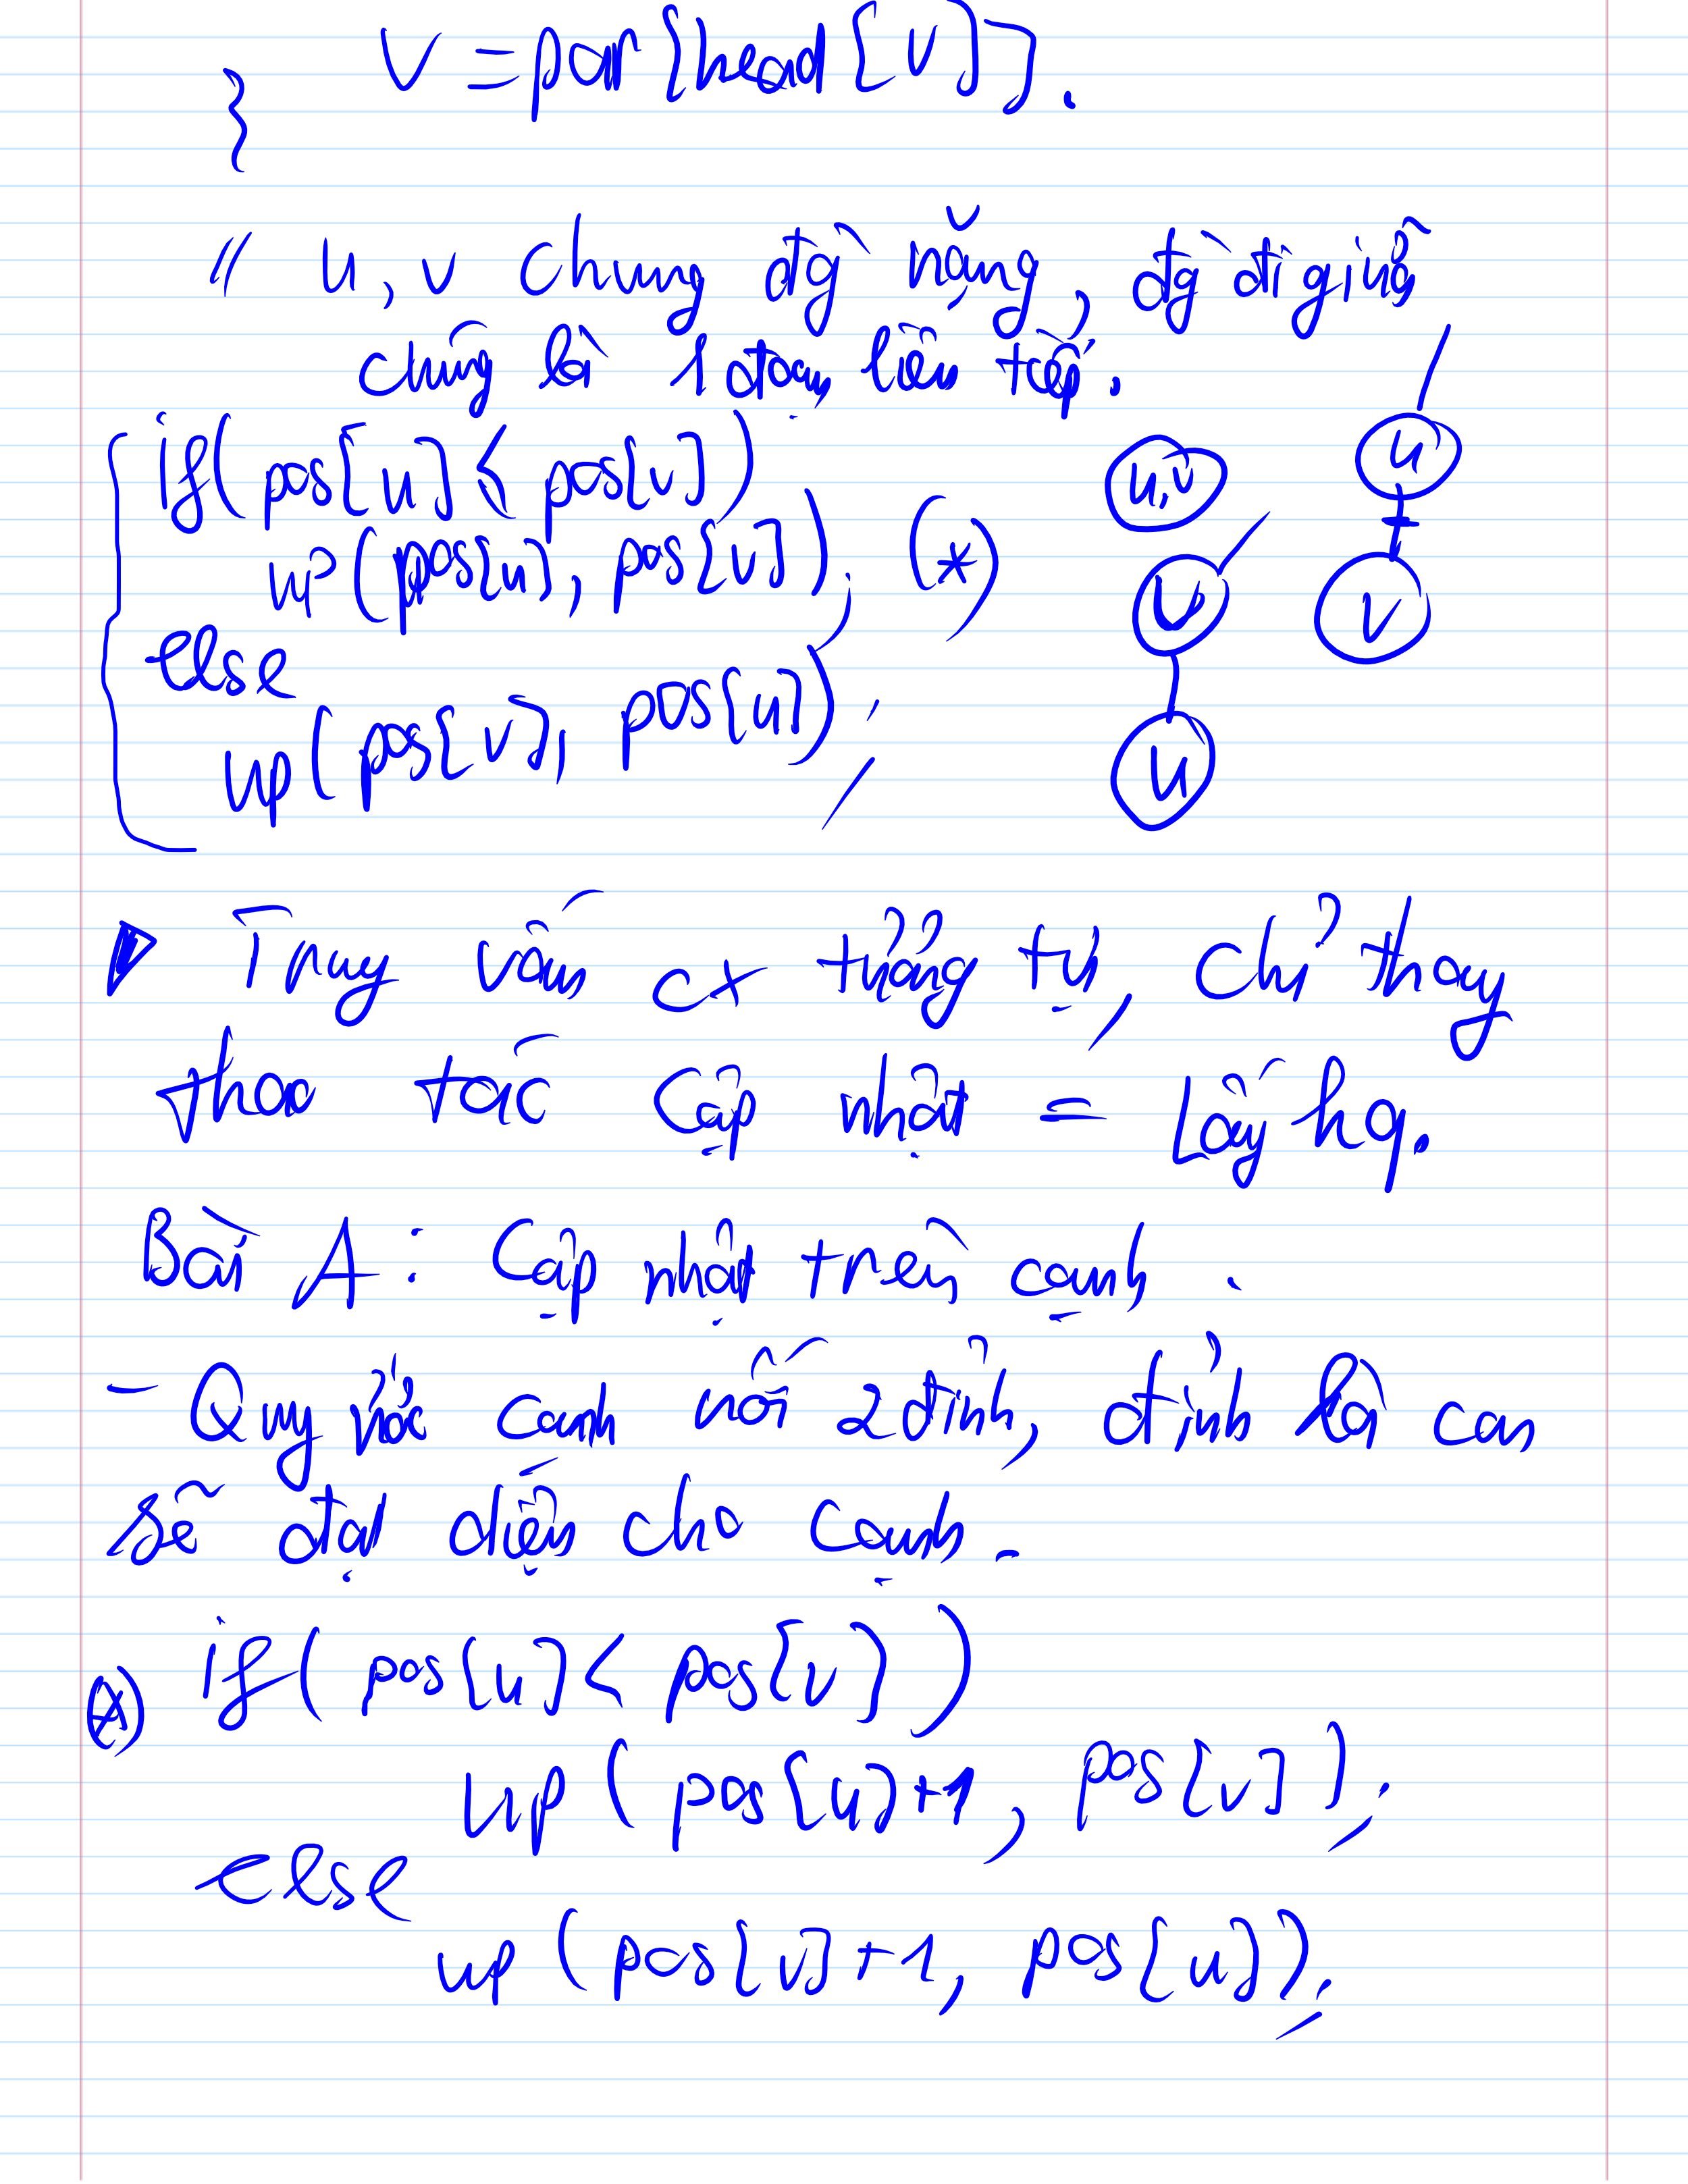 v = par[head[v]].
}
// u, v chung đg nặng, đg đi giữa
chúng là 1 đoạn liên tiếp.
if( pos[u] < pos[v])
up(pos[u], pos[v]); (*)
else
up(pos[v], pos[u]);
u,v
u
v
v
u
Truy vấn cx tương tự, chỉ thay
thao tác cập nhật = lấy kq.
Bài A: Cập nhật trên cạnh.
- Quy ước cạnh nối 2 đỉnh, đỉnh là con
sẽ đại diện cho cạnh.
(*) if( pos[u] < pos[v])
up( pos[u]+1, pos[v]);
else
up( pos[v]+1, pos[u]);